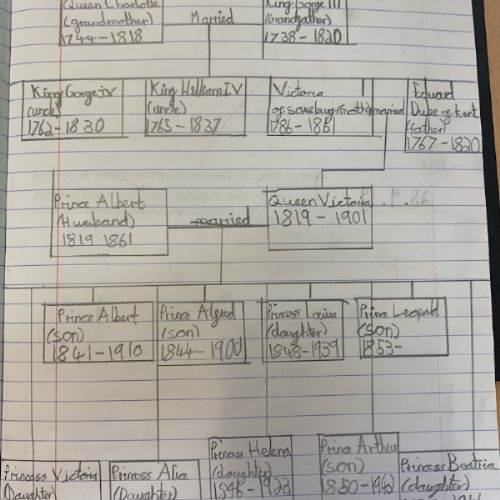 Queen Charlotte
(grandmother)
1744-1818
Married
King Gorge III
(Grandfather)
1738-1820
King Gorge IV
(uncle)
1762-1830
King William IV
(uncle)
1765-1837
Victoria
of saxebug(mother)
1786-1861
married
Edward
Duke of kent
(father)
1767-1820
Prince Albert
(Husband)
1819 1861
married
Queen Victoria
1819-1901
Prince Albert
(son)
1841-1910
Prince Alfred
(son)
1844-1900
Princess Louise
(daughter)
1848-1939
Prince Leopald
(son)
1853-
Princess Victoria
(Daughter)
Princess Alice
(Daughter)
Princess Helena
(daughter)
1846-1923
Prince Arthur
(son)
1850-1942
Princess Beatria
(daughter)